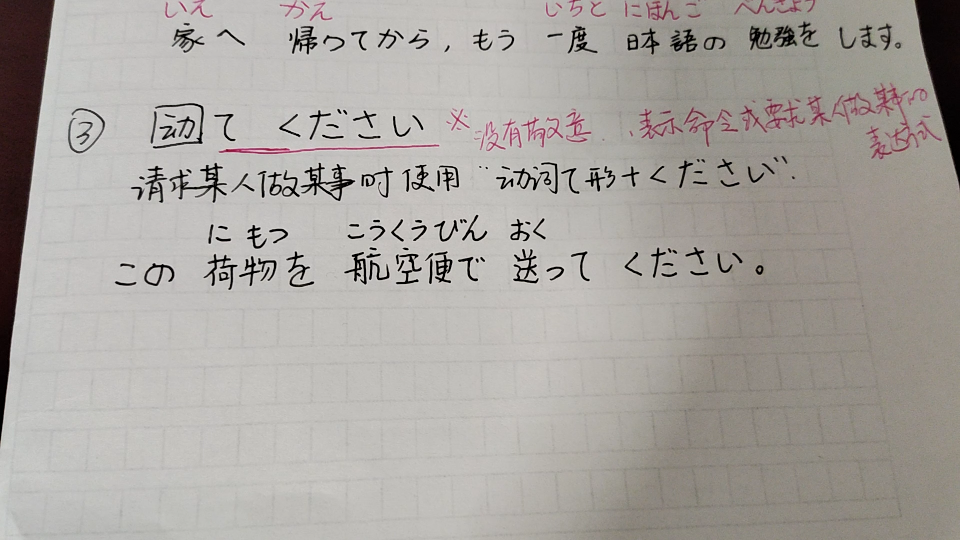 いえ かえ いちど にほんご べんきょう
家へ 帰ってから, もう 一度 日本語の 勉強を します。
③ 动て ください ※没有敬意、表示命令或要求某人做某事的
表达方式
请求某人做某事时使用"动词て形+ください".
にもつ こうくうびん おく
この 荷物を 航空便で 送って ください。